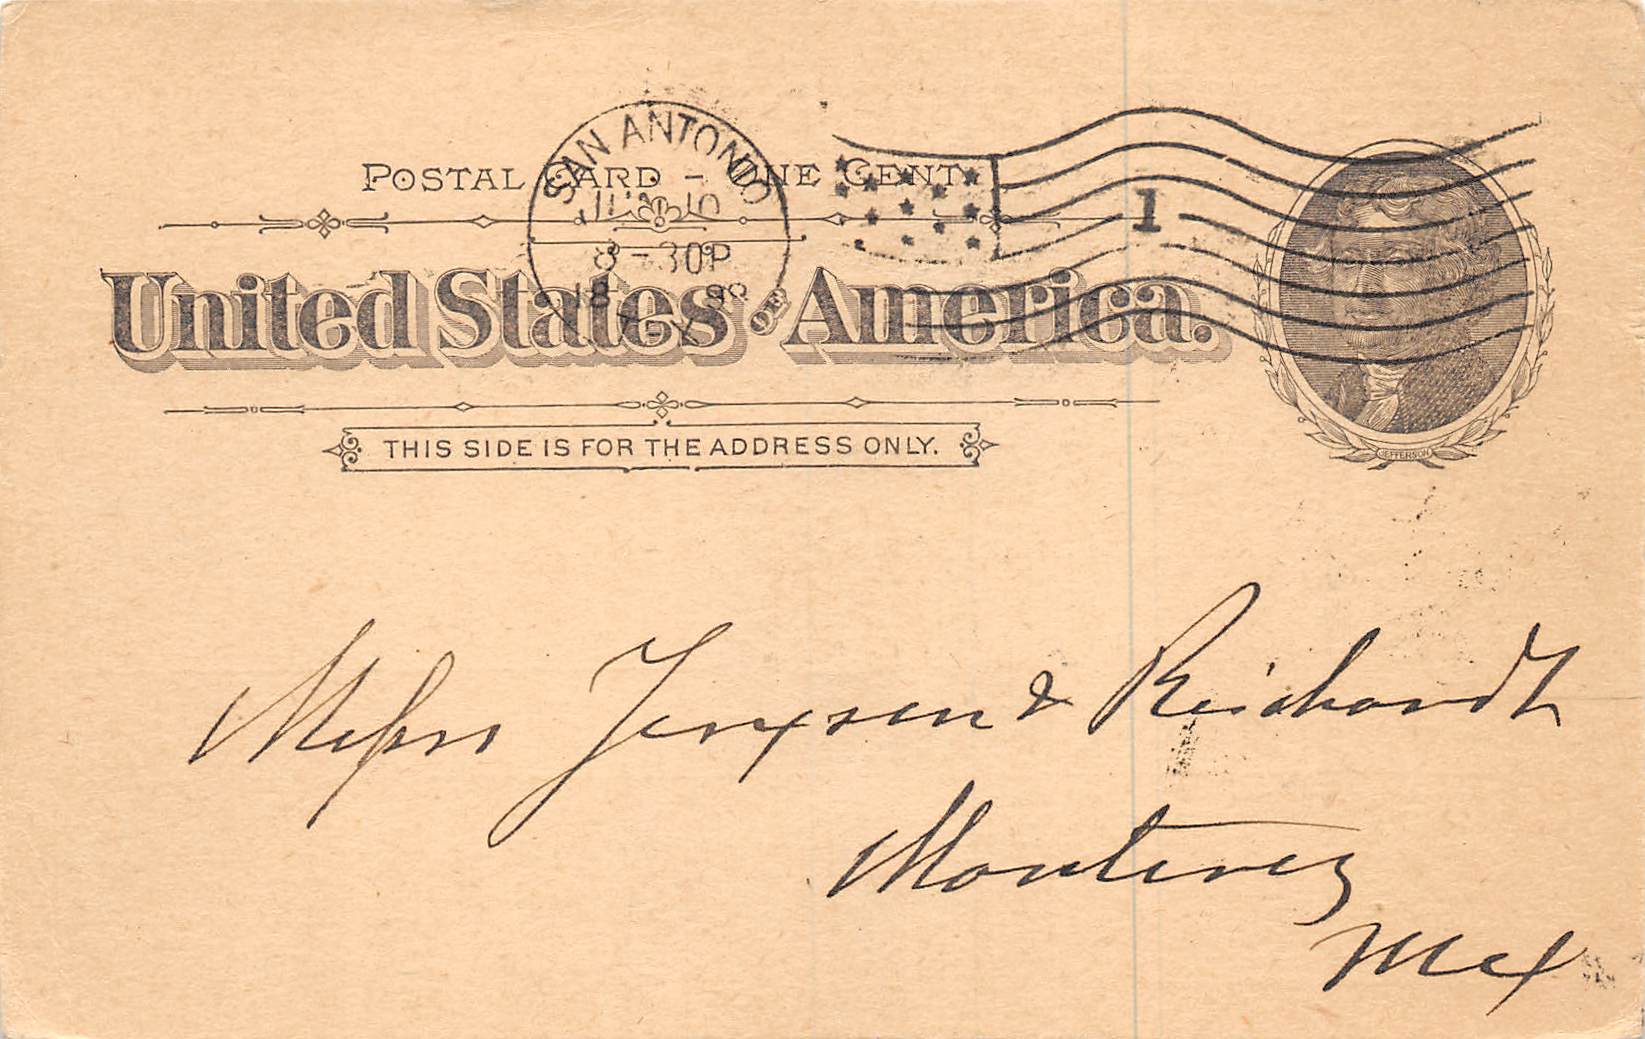 POSTAL CARD – ONE CENT.
SAN ANTONIO
JUN 10
8 – 30P
18 98
TEX
1
United States of America.
JEFFERSON
THIS SIDE IS FOR THE ADDRESS ONLY.
& Reichardt
Monterey
Mex